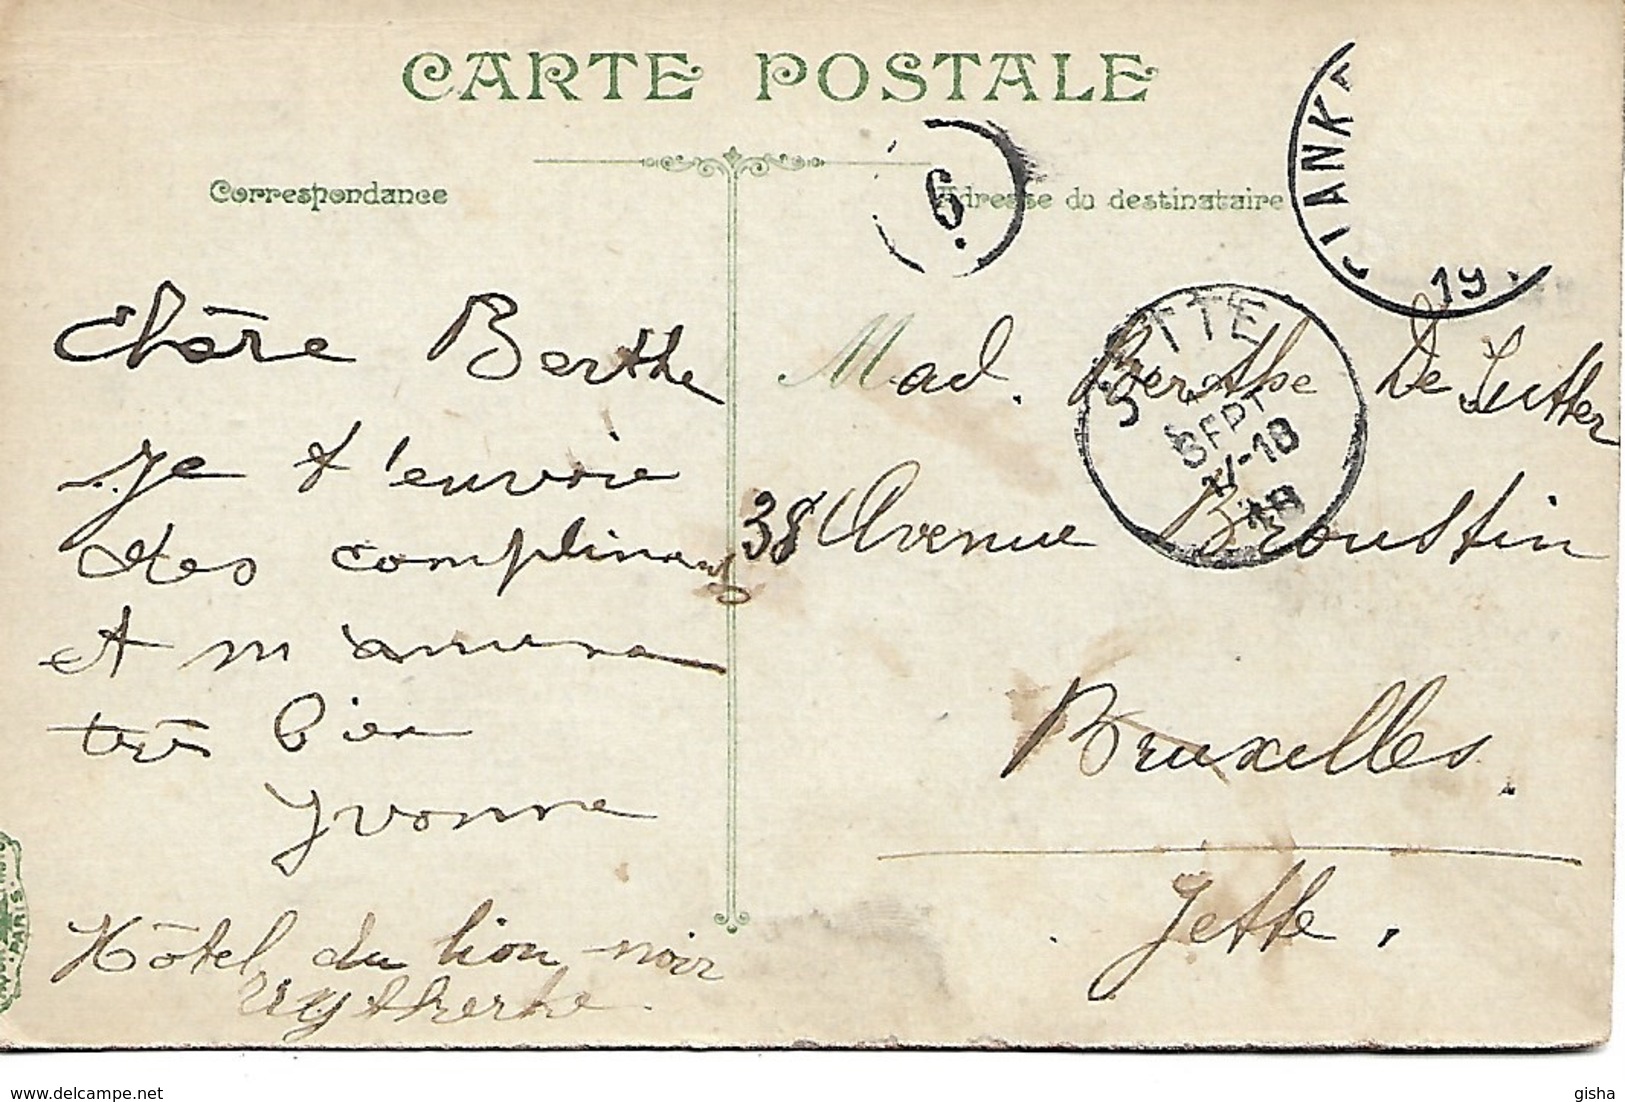 CARTE POSTALE
Correspondance
Adresse du destinataire
6
IANK
19
JETTE
SEPT
17-18
Chère Berthe
Je t'envoie
des compliments
et m'amuse
très bien
Yvonne
Hôtel du lion noir
Uytkerke
Mad. Berthe De Sutter
38 Avenue Broustin
Bruxelles.
Jette.
PARIS
www.delcampe.net
gisha